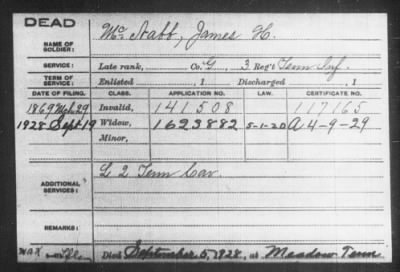 DEAD
NAME OF SOLDIER: McNabb, James H.
SERVICE: Late rank, Co. G, 3 Reg't Tenn Inf.
TERM OF SERVICE: Enlisted , 1 Discharged , 1
DATE OF FILING. CLASS. APPLICATION NO. LAW. CERTIFICATE NO.
1869 Mch 29 Invalid, 141508 117165
1928 Sept 19 Widow, 1623882 5-1-20 A 4-9-29
Minor,
ADDITIONAL SERVICES: L 2 Tenn Cav.
REMARKS:
Died September 5, 1928, at Meadow Tenn